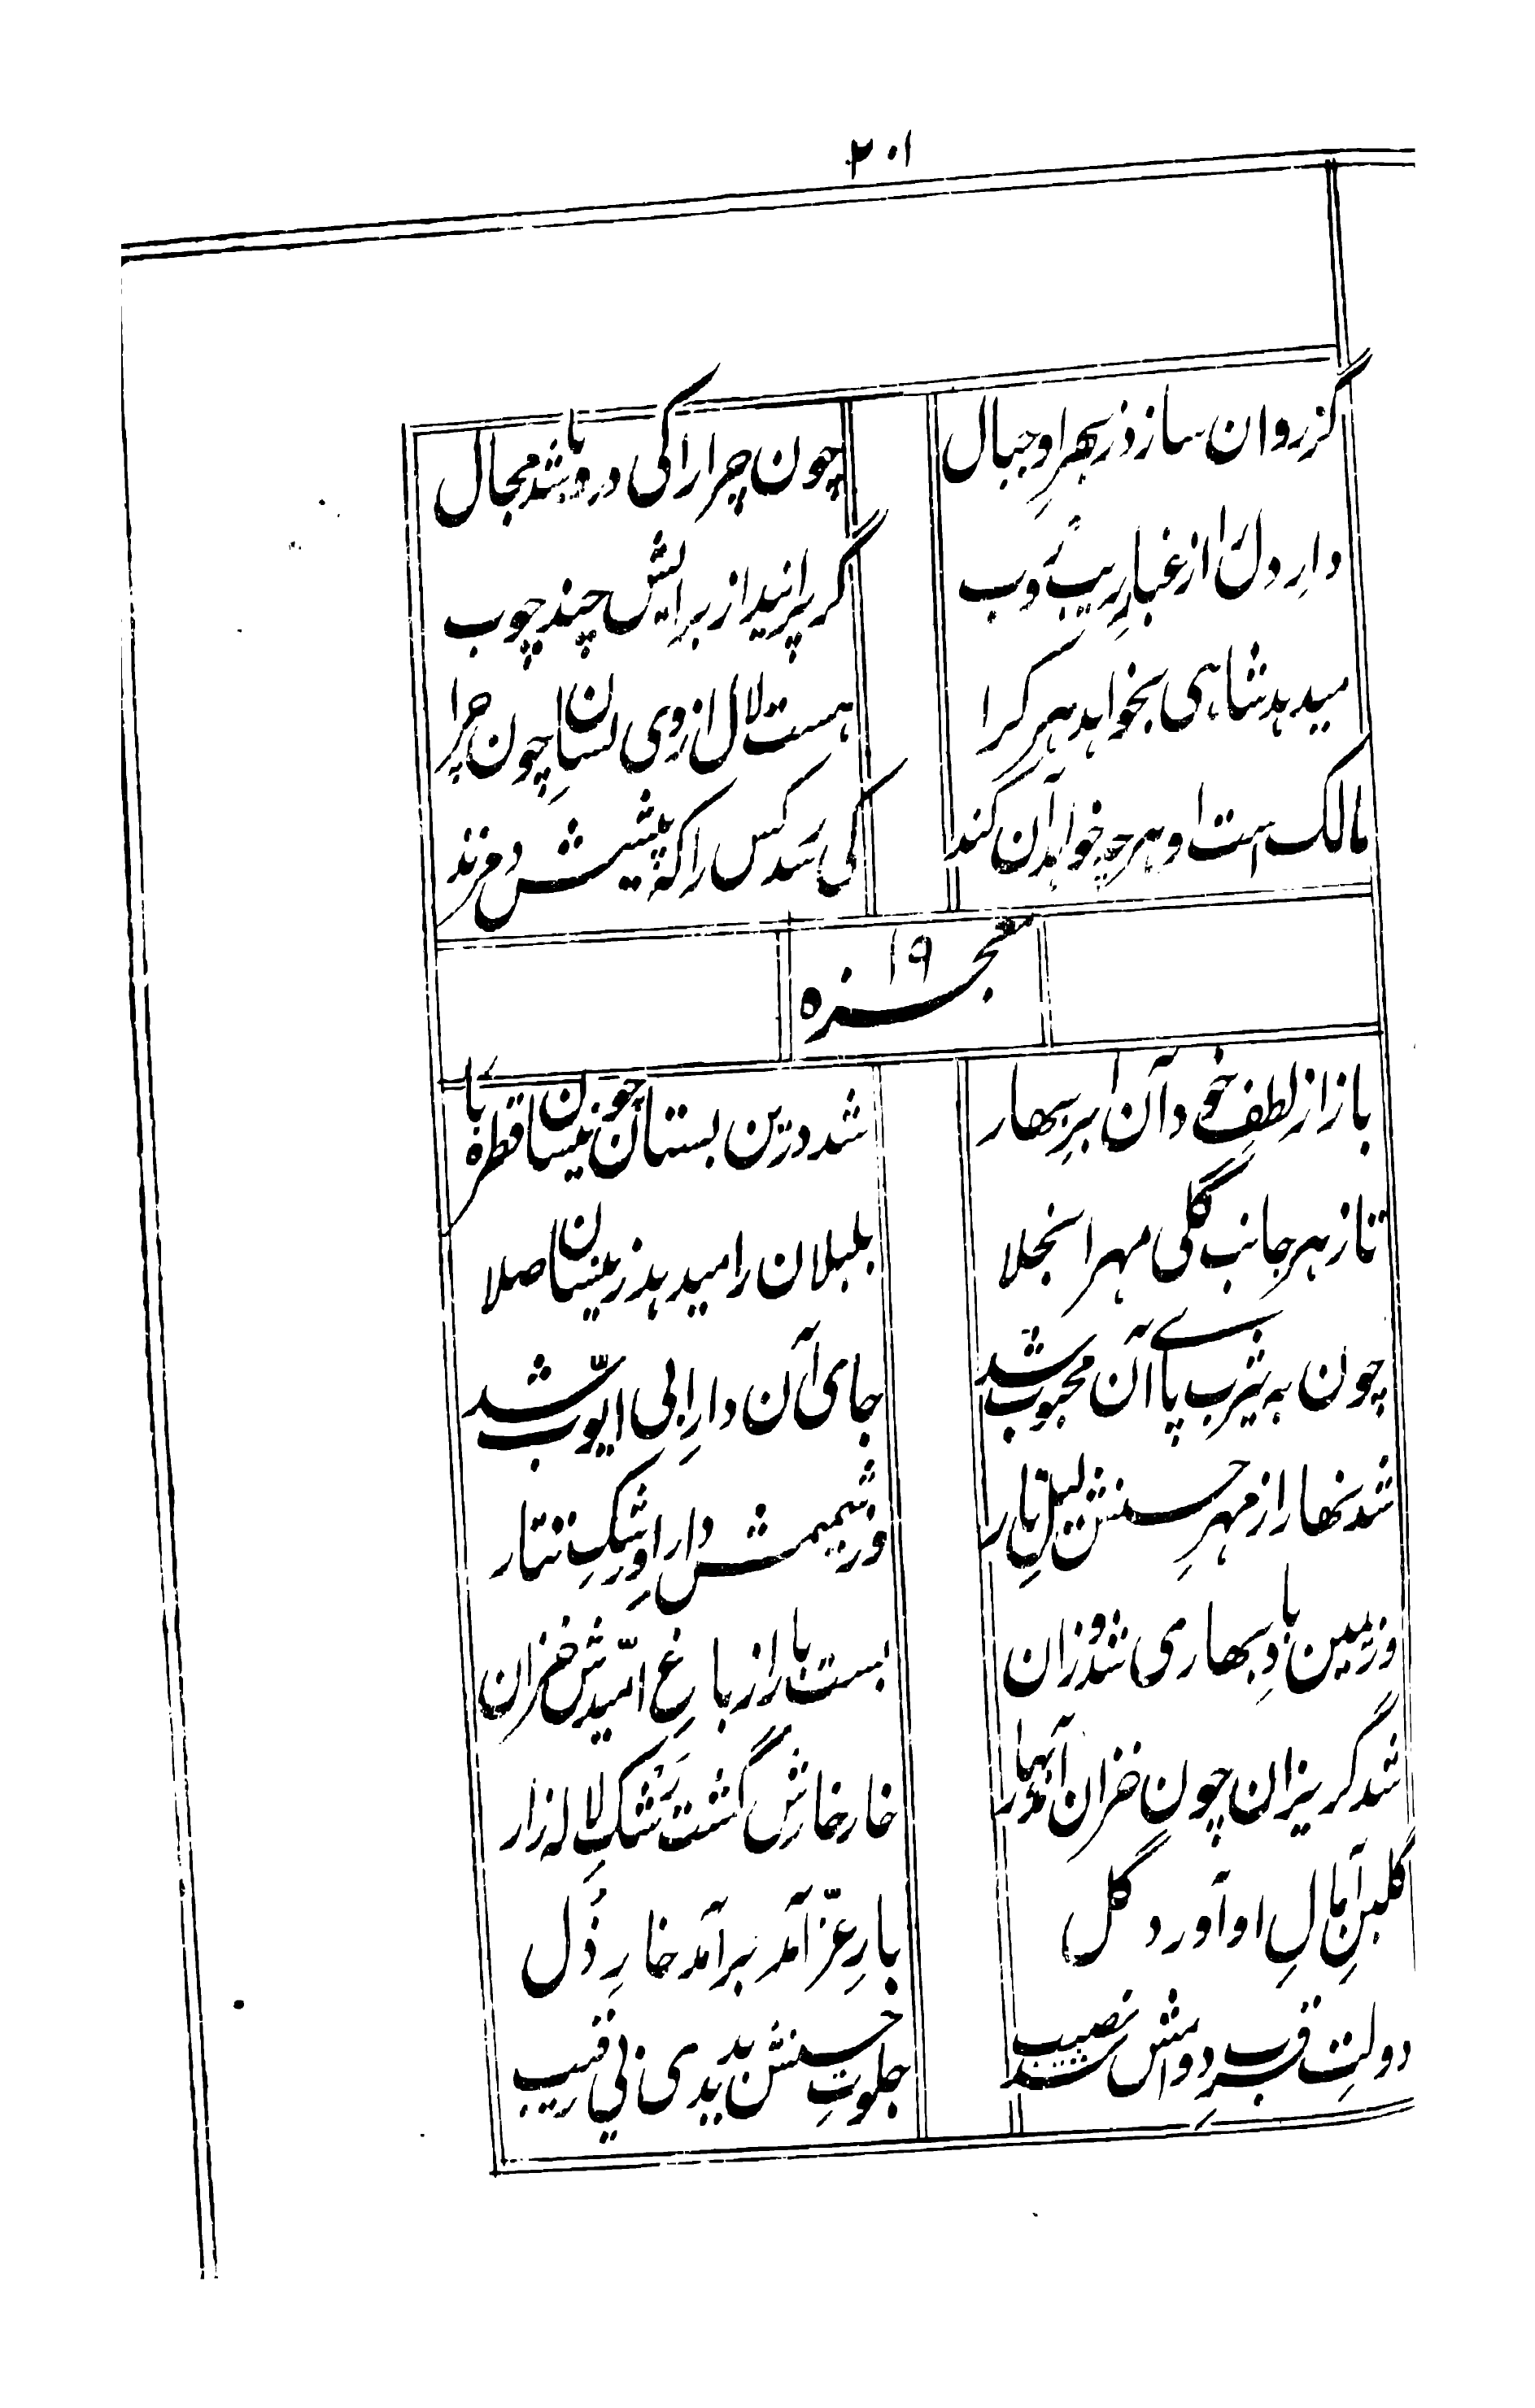 ۲۰۱
گر روان سازد ز بهرِ او جبال
چون چرا را کی درو باشد مجال
دارِ دل را از غبارِ ریب روب
گر پراند از برایش چند چوب
میدهد شاهی بخواهد هر کرا
هست لال از وی لسانِ چون چرا
مالک است او هرچه خواهد آن کند
کی رسد کس را که پیشش دم زند
معجزه ۱۹
باز از لطفِ خود آن ابرِ بهار
شد درین بستان چو نیسان قطره بار
تا ز هر جانب گلی مهر انجلا
بلبلان را میدهد زینسان صلا
چون به یثرب پای آن محبوب شد
جای آن دارِ ابی ایّوب شد
شد نهار از مهرِ حسنش لیلِ تار
وز شمیمش دارِ او رشکِ تتار
وز یمین بادِ بهاری شد وزان
بست بار از باغِ امّیدش خزان
شد گریزان چون خزان
خار خارش گشت رشکِ لاله زار
گلبنِ آمالِ او آورد گل
بارِ عزّ آمد برآمد خارِ ذُل
دولتِ قربِ دوامش شد نصیب
جلوتِ حسنش بدیدی بی رقیب